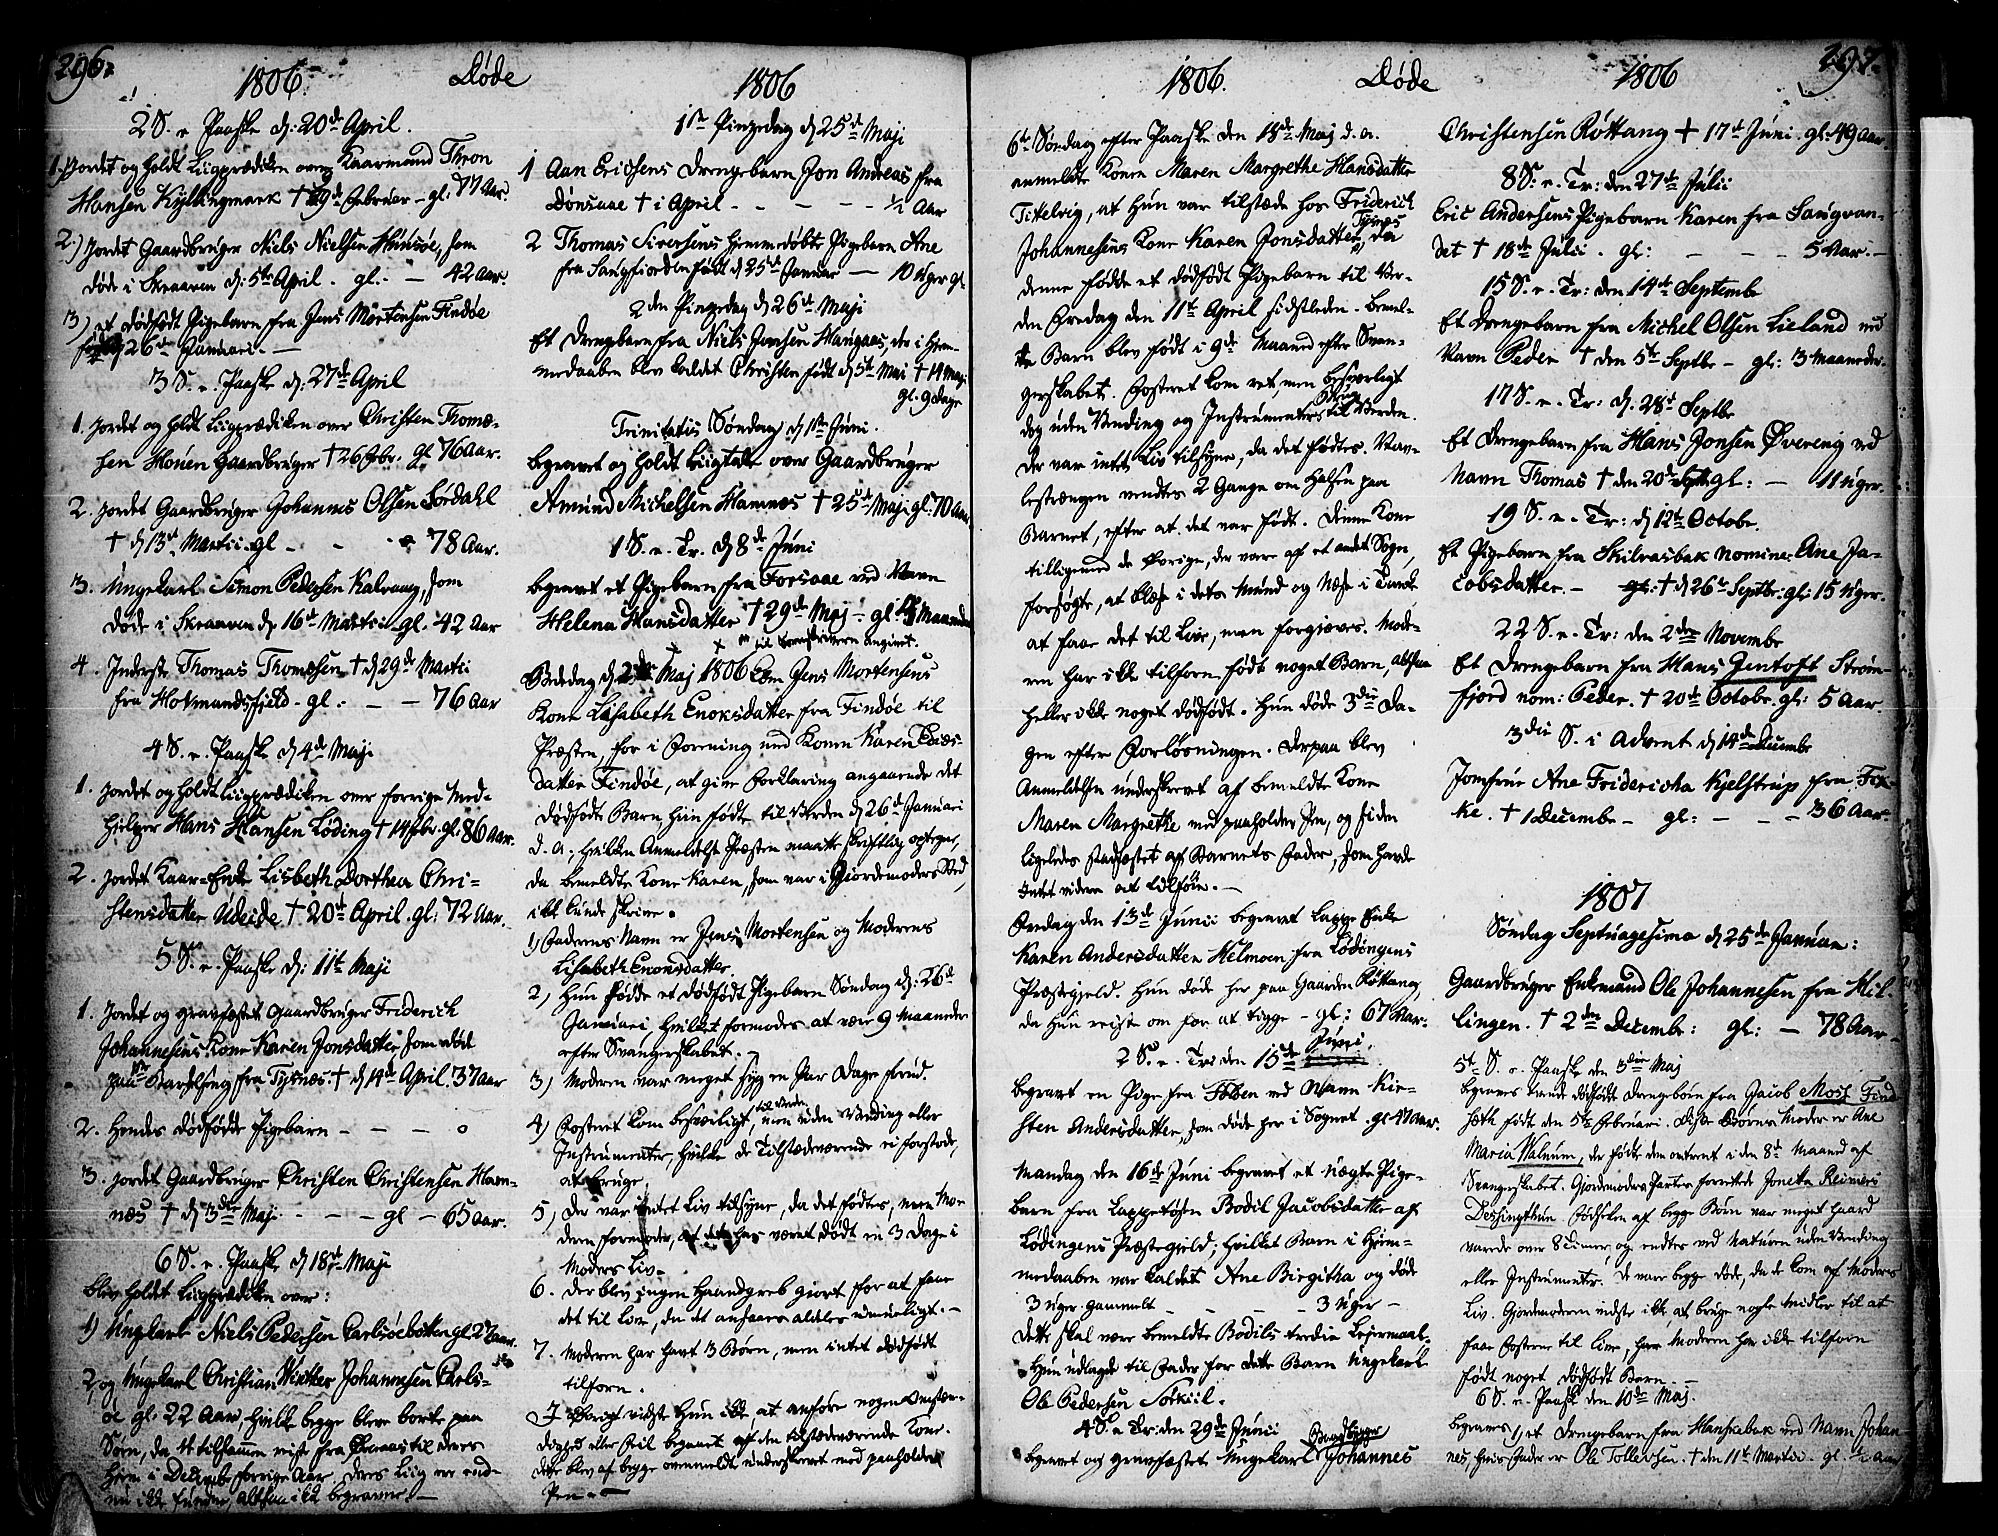 296.
1806. Døde 1806
2 S. e. Paaske d: 20de April.
1. Jordet og holdt Liigprædiken over Kaarmand Thron
Hansen Kyllingmark † 19de Februar - gl. 77 Aar.
2.) Jordet Gaardbruger Niels Nielsen Hunsøe, som
døde i Skraaven d: 5te April. gl: - 42 Aar.
3) et dødfødt Pigebarn fra Jens Mortensen Findøe
26de Januari. -
3 S. e. Paaske d: 27de April
1. Jordet og holdt Liigprædiken over Christen Thomæ-
sen Monen Gaardbruger † 26 Febr. gl 76 Aar.
2. Jordet Gaardbruger Johannes Olsen Sørdahl
† d 13de Martii gl - - 78 Aar.
3. Ungekarl Simon Pedersen Kalvaag, som
døde i Skraaven d 16de Martii gl. 42 Aar
4. Inderst Thomas Thomesen † d 29de Martii
fra Hokmandsfield - gl: - - 76 Aar
4 S. e. Paaske d 4de Maji
1. Jordet og holdt Liigprædiken over forrige Med-
hjelper Hans Hansen Løding † 14 Febr. gl: 86 Aar.
2. Jordet Kaar-Enke Lisbeth Dorthea Chri-
stensdatter Udeide † 20de April. gl: 72 Aar.
5 S. e. Paaske d: 11te Maji
1. Jordet og gravfæstet Gaardbruger Friderich
Johannesens Kone Karen Jonsdatter som døde
paa Barselseng fra Tysnæs. † d 14de April. 37 Aar
2. Hendes dødfødde Pigebarn - - - 0
3. Jordet Gaardbruger Christen Christensen Ham-
næs † d 3die Maji - - - gl - 65 Aar.
6 S. e. Paaske d 18de Maji
blev holdet Liigprædiken over:
1) Ungkarl Niels Pedersen Carlsøebotten gl 27 Aar.
2, og Ungekarl Christian Winther Johannesen Carls-
øe gl: 22 Aar, hvilke begge bleve borte paa
Søen, da 4 tilsammen reiste fra til deres
Hiem i Decembr forrige Aar. Deres Liig er end-
nu ikke fundne, altsaa ikke begravne. -
1ste Pinzedag d 25de Maji
1 Aan Erichsens Drengebarn Jon Andreas fra
Dønsaae † i April - - - - ½ Aar
2 Thomas Siversens hiemmedøbte Pigebarn Ane
fra Langfiorden født d 25de Januar - 10 Uger gl
2den Pinzedag d 26de Maji
Et Drengebarn fra Niels Jonsen Hangaas, der i Hiem-
medaaben blev kaldet Christen født d 5te Mai † 14 Maji
gl. 9 dage
Trinitatis Søndag d 1ste Juni.
begravet og holdt Liigtale over Gaardbruger
Amund Michelsen Hamnæs † 25de Maji gl: 70 Aar
1 S. e. Tr. d 8de Juni
begravet et Pigebarn fra Forsaae ved Navn
Helena Hansdatter † 29de Maj - gl. Maaneder
Bededag d 2de Maj 1806 kom Jens Mortensens
Kone Lisabeth Enoksdatter fra Findøe til
Præsten, for i Forening med Konen Karen
datter Findøe, at give Forklaring angaaende det
dødfødte Barn hun fødte til Verden d 26de Januari
d. A., hvilken Anmeldelse Præsten maatte skriftlig optegne,
da bemeldte Kone Karen, som var i Giordemoders Sted,
ikke kunde skrive.
1) Faderens Navn er Jens Mortensen og Moderens
Lisabeth Enoxsdatter.
2) Hun fødde et dødfødt Pigebarn Søndag d: 26de
Januari, hvilket formodes at være 9 Maaneder
efter Svangerskabet. -
3) Moderen var meget syg en Par Dage forud.
4) Fostret kom besværligt til Verden, men uden Vending eller
Instrumenter, hvilke de Tilstædeværende ei forstode,
at bruge.
5) Der var intet Liv tilsyne, da det fødtes, men Mo-
deren formoder, at det har været dødt en 3 Dage i
Moders Liv.
6. Der blev ingen Haandgreb giort for at faae
det til Live, da det ansaaes aldeles umueligt. -
7. Moderen har havt 3 Børn, men intet dødfødt
tilforn.
I øvrigt vidste hun ikke, at anføre nogen Omstæn-
dighed eller Feil begaaet af den tilstædeværende Kone.
Dette blev af begge ovenmeldte underskrevet med paaholden
Pen. -
297.
1806. Døde 1806
6te Søndag efter Paaske den 18de Maj d. A.
anmeldte Konen Maren Margrethe Hansdatter
Tittelvig, at hun var tilstæde hos Friderich
Johannesens Kone Karen Jonsdatter Tysnæs, da
denne fødde et dødfødt Pigebarn til Ver-
den Fredag den 11te April sidstleden. Bemel-
te Barn blev født i 9de Maaned efter Svan-
gerskabet. Fosteret kom ret, men besværligt
dog uden Vending og Instrumenters Brug til Verden.
Der var intet Liv tilsyne, da det fødtes. Nav-
lestrængen vendtes 2 Gange om Halsen paa
Barnet, efter at det var født. Denne Kone
tilligemed de Øvrige, der vare af et andet Sogn,
forsøgte, at blæse i dets Mund og Næse i Tanke
at faae det til Live, men forgiæves. Mode-
ren har ikke tilforn født noget Barn, altsaa
heller ikke noget dødfødt. Hun døde 3die Da-
gen efter Forløsningen. Derpaa blev
Anmeldelsen underskrevet af bemeldte Kone
Maren Margrethe med paaholden Pen, og siden
ligeledes stadfæstet af Barnets Fader, som havde
Intet videre at tilføie. -
Fredag den 13de Junii begravet Lappe Enke
Karen Andersdatter Helmoen fra Lødingens
Præstegjeld. Hun døde her paa Gaarden Røttang,
da hun reiste om for at tigge - gl: 67 Aar.
2 S. e. Tr: den 15de Juni.
begravet en Pige fra Ibben ved Navn Kir-
sten Andersdatter, som døde her i Sognet. gl 47 Aar.
Mandag den 16de Juni begravet et uægte Pige-
barn fra Lappetøsen Bodil Jacobsdatter af
Lødingens Præstegjeld; hvilket Barn i Hiem-
medaaben var kaldet Ane Birgitha og døde
3 Uger gammelt - - - - 3 Uger -
Dette skal være bemeldte Bodils tredie Lejermaal.
Hun udlagde til Fader for dette Barn Ungekarl
Ole Pedersen Sørkiil.
4 S. e. Tr: den 29de Junii
begravet og gravfæstet Ungekarl Gaardbruger Johannes
Christensen Røttang † 17de Juni. gl: 49 Aar
8 S. e. Tr: den 27de Julii
Eric Andersens Pigebarn Karen fra Sangvan-
det † 18de Julii. gl: - - - 5 Aar. -
15 S. e. Tr: den 14de Septembr
Et Drengebarn fra Michel Olsen Lieland ved
Navn Peder † den 5te Septbr - gl: 3 Maaneder.
17 S. e. Tr: d. 28de Septbr
Et Drengebarn fra Hans Jonsen Øvereng ved
Navn Thomas † den 20de Septbr gl: - 11 Uger.
19 S. e. Tr: d 12te Octobr.
Et Pigebarn fra Skilvasbak nomine: Ane Ja-
cobsdatter. - † d 26de Septbr: gl: 15 Uger.
22 S. e. Tr: den 2den Novembr
Et Drengebarn fra Hans Gentoft Strøm-
fjord nom: Peder. † 20de Octobr. gl: 5 Aar.
3die S. i Advent d 14de Decembr
Jomfrue Ane Fridericha Kjelstrup fra
ke. † 1 Decembr - gl: - - - 36 Aar.
1807
Søndag Septuagesima d 25de Januar:
Gaardbruger Enkemand Ole Johannesen fra Hil-
lingen. † 2den Decembr: gl: - 78 Aar
5te S. e. Paaske den 3die Maj
begraves tvende dødfødte Drengebørn fra Jacob Moss Find-
sæth født den 5te Februari. Disse Børns Moder er Ane
Maria Walnum, der fødte dem omtrent i den 8de Maaned af
Svangerskabet. Gjordemoders Partes forrettede Joneta Reiners
Dessingthun. Fødselen af begge Børn var meget haard
varede over 8 Timer, og endtes ved Naturen uden Vending
eller Instrumenter. De vare begge døde, da de kom af Moders
Liv. Gjordemoderen vidste ikke, at bruge nogle Midler til at
faae Fosterne til Live, har Moderen har ikke tilforn
født noget dødfødt Barn. -
6 S. e. Paask den 10de Maj.
begraves 1) et Drengebarn fra Hanskabak ved Navn Johan
nes, hvis Fader er Ole Tollevsen. † den 11te Martii. gl. ½ Aar